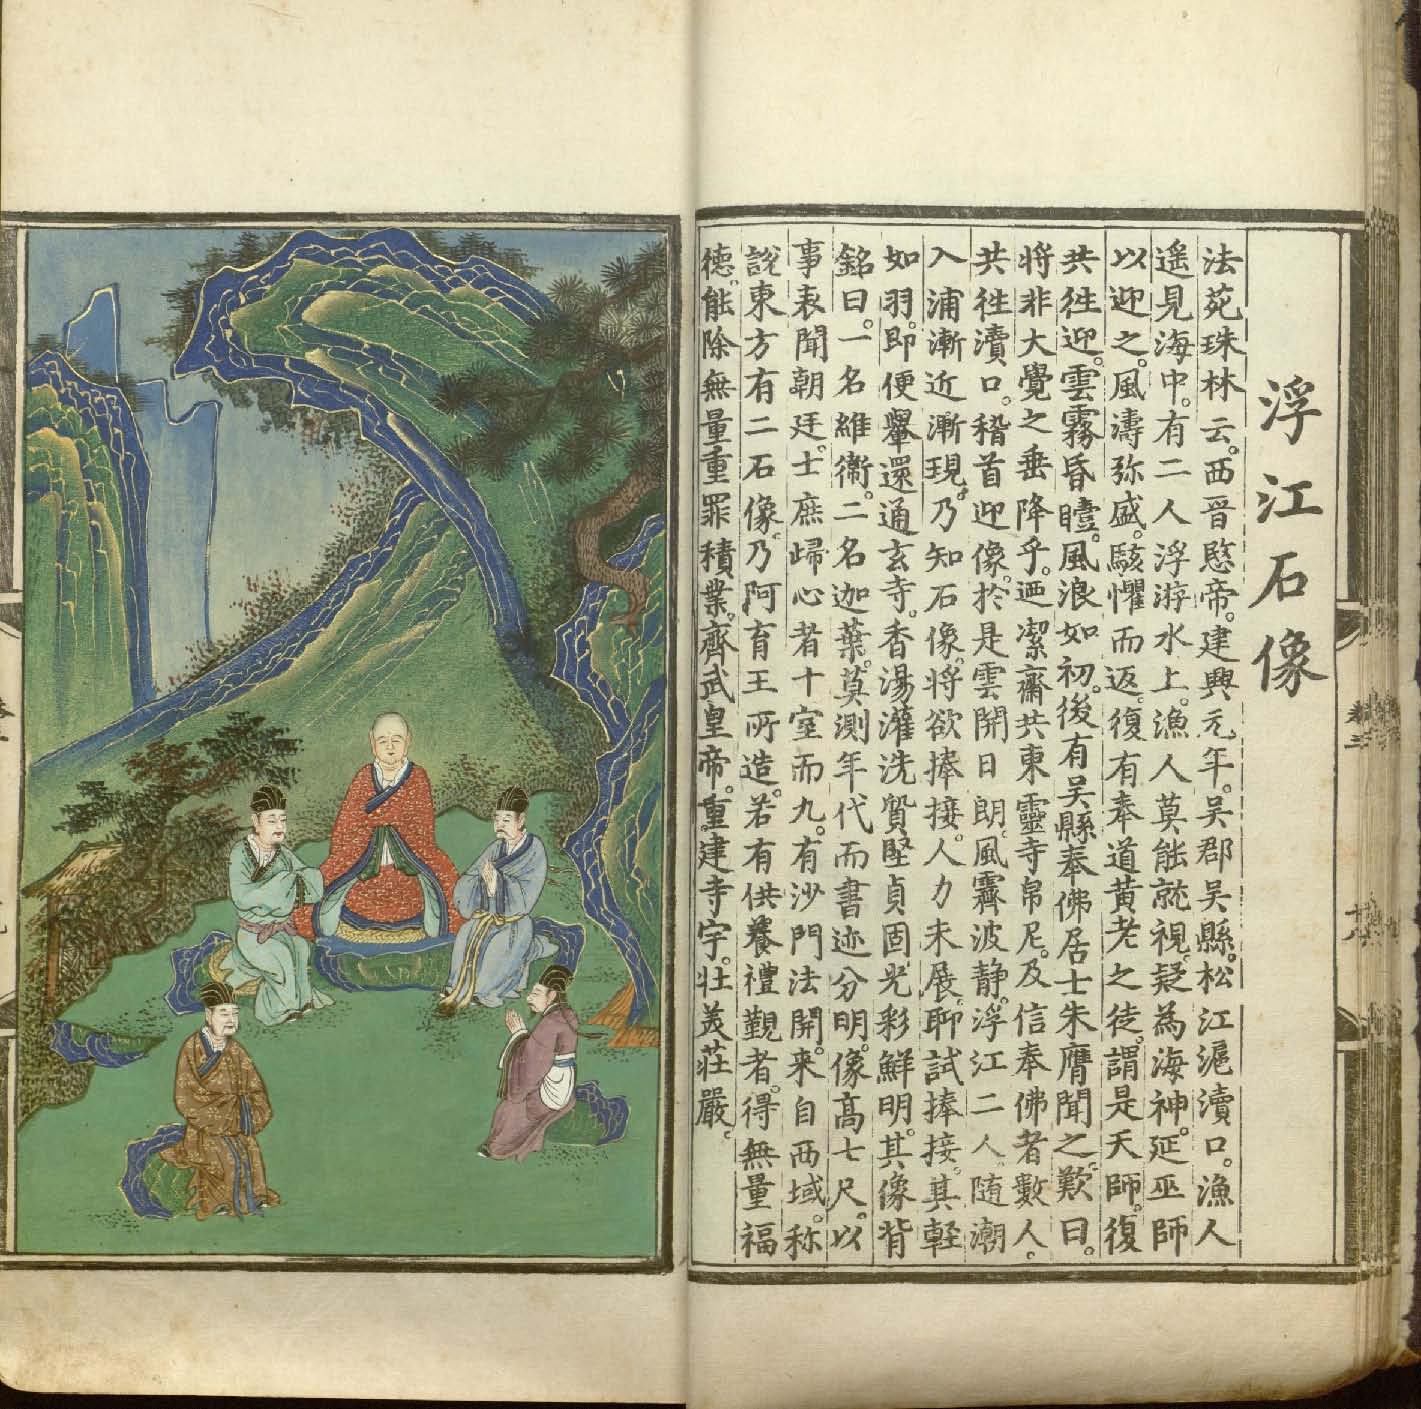 浮江石像
法苑珠林云。西晉愍帝。建興元年。吳郡吳縣。松江滬瀆口。漁人
遙見海中。有二人浮游水上。漁人莫能就視。疑為海神。延巫師
以迎之。風濤弥盛。駭懼而返。復有奉道黃老之徒。謂是天師。復
共往迎。雲霧昏曀。風浪如初。後有吳縣奉佛居士朱膺聞之。歎曰。
將非大覺之垂降乎。迺潔齋共東靈寺帛尼。及信奉佛者數人。
共往瀆口。稽首迎像。於是雲開日朗。風霽波靜。浮江二人。隨潮
入浦漸近漸現。乃知石像。將欲捧接。人力未展。聊試捧接。其輕
如羽。即便轝還通玄寺。香湯灌洗質堅貞固。光彩鮮明。其像背
銘曰。一名維衛。二名迦葉。莫測年代而書迹分明。像高七尺。以
事表聞朝廷。士庶歸心者十室而九。有沙門法開。来自西域。称
說東方有二石像。乃阿育王所造。若有供養禮覲者。得無量福
德。能除無量重罪積業。齊武皇帝。重建寺宇。壯羙莊嚴。
卷三
十八